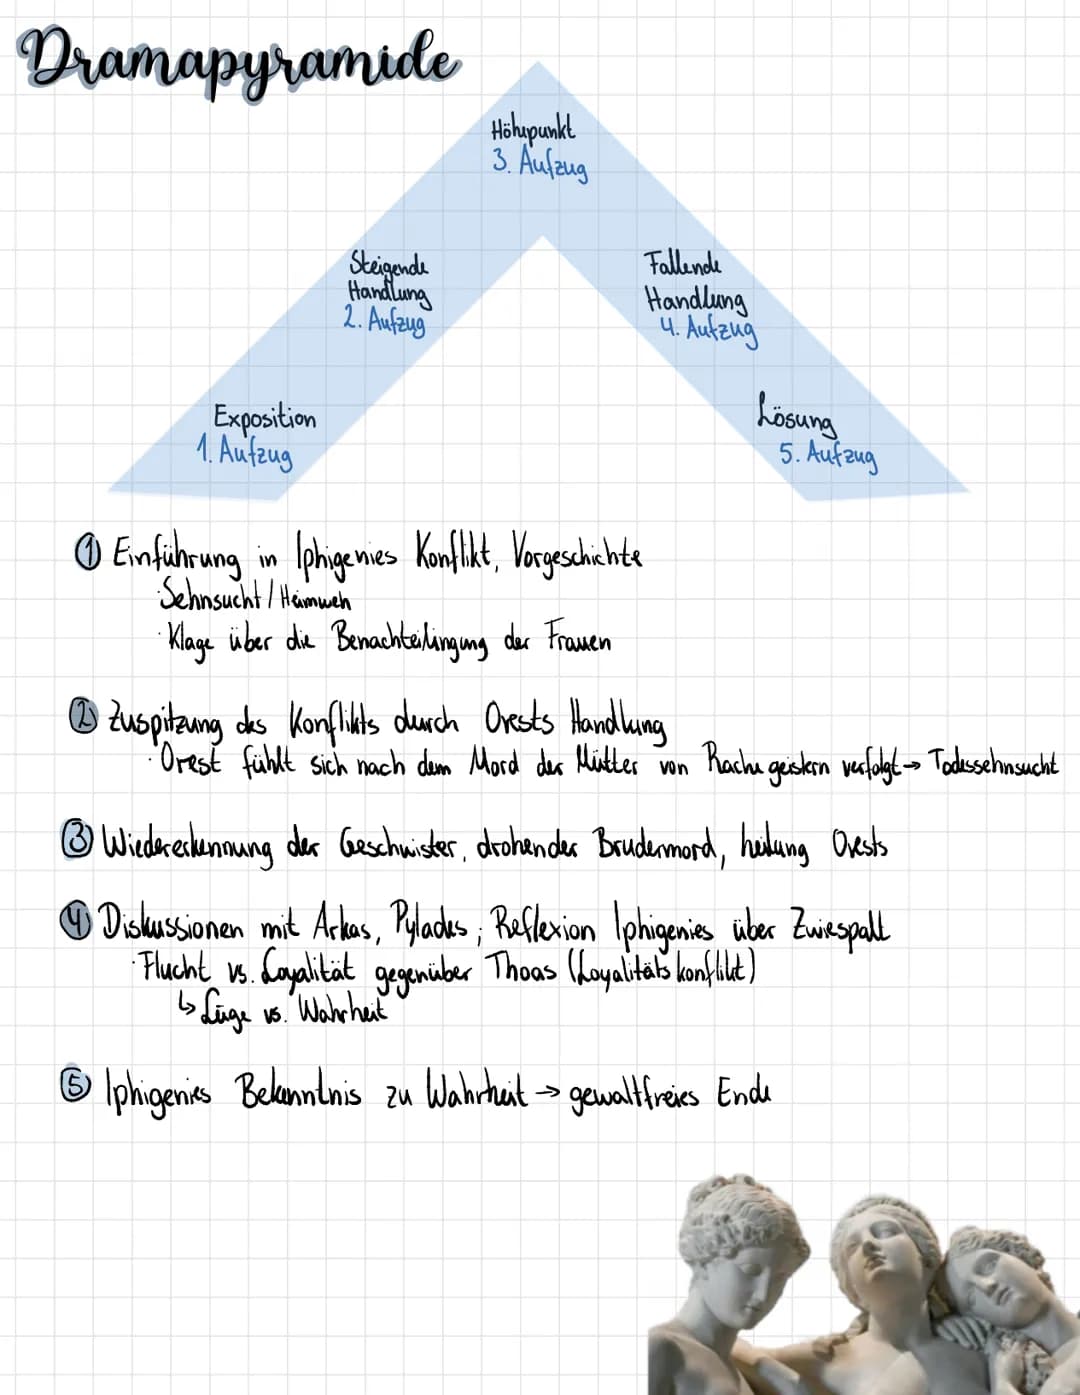 Dramapyramide
Höhepunkt
3. Aufzug
Steigende
Handlung
2. Aufzug
Fallende
Handlung
4. Aufzug
Exposition
1. Aufzug
Lösung
5. Aufzug
① Einführung in Iphigenies Konflikt, Vorgeschichte
· Sehnsucht / Heimweh
· Klage über die Benachteilingung der Frauen
② Zuspitzung des Konflikts durch Orests Handlung
· Orest fühlt sich nach dem Mord der Mutter von Rachegeistern verfolgt → Todessehnsucht
③ Wiedererkennung der Geschwister, drohender Brudermord, heilung Orests
④ Diskussionen mit Arkas, Pylades; Reflexion Iphigenies über Zwiespalt
· Flucht vs. Loyalität gegenüber Thoas (Loyalitätskonflikt)
↳ Lüge vs. Wahrheit
⑤ Iphigenies Bekenntnis zu Wahrheit → gewaltfreies Ende